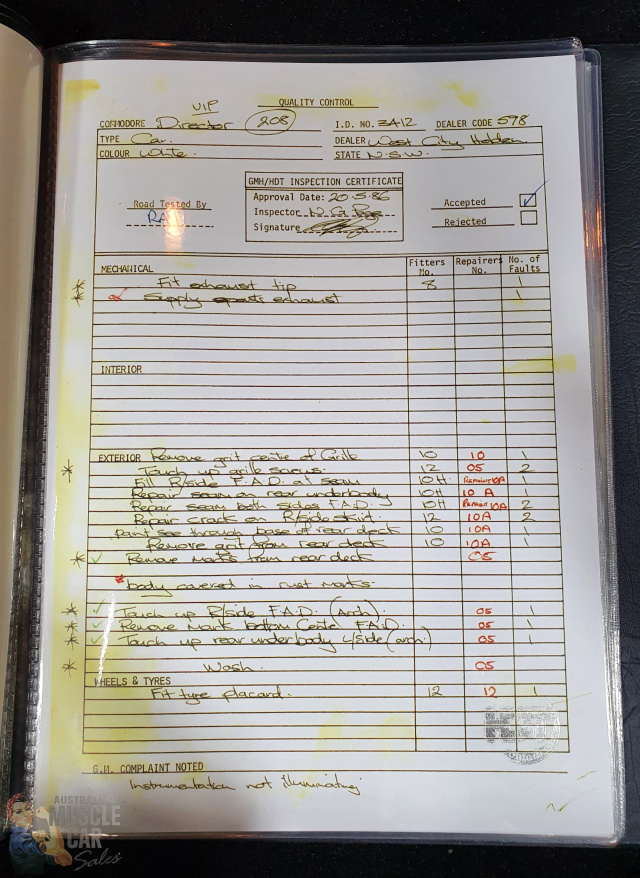 VIP
QUALITY CONTROL
COMMODORE Director 208 I.D. NO. 3412 DEALER CODE 598
TYPE Car. DEALER West City Holden.
COLOUR White. STATE N.S.W.
GMH/HDT INSPECTION CERTIFICATE
Approval Date: 20-5-86
Inspector
Signature
Road Tested By
Accepted
Rejected
MECHANICAL Fitters No. Repairers No. No. of Faults
* Fit exhaust tip 8 1
* Supply sports exhaust 1
INTERIOR
EXTERIOR Remove grit centre of Grille 10 10 1
* Touch up grille screws. 12 05 2
Fill R/side F.A.D. at seam 10H 10A 1
Repair seam on rear underbody 10H 10A 1
Repair seam both sides F.A.D. 10H 10A 2
Repair crack on R/side skirt. 12 10A 2
paint see through base of rear deck 10 10A 1
Remove grit from rear deck 10 10A 1
* Remove marks from rear deck 05
* body covered in rust marks.
* Touch up R/side F.A.D. (Arch) 05 1
* Remove marks bottom Center F.A.D. 05 1
* Touch up rear underbody L/side (arch.) 05 1
* Wash. 05
WHEELS & TYRES
Fit tyre placard. 12 12 1
G.M. COMPLAINT NOTED
Instrumentation not illuminating
AUSTRALIAN
MUSCLE
CAR
Sales